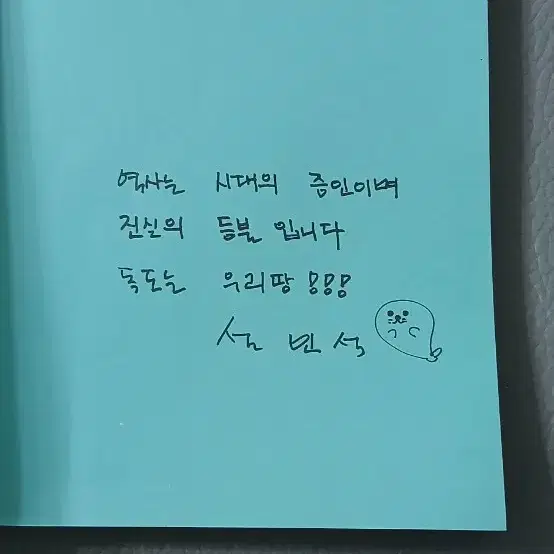 역사는 시대의 증인이며
진실의 등불 입니다
독도는 우리땅 !!!
설 민 석